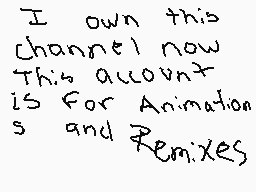 I own this
channel now
This account
is for Animation
s and Remixes